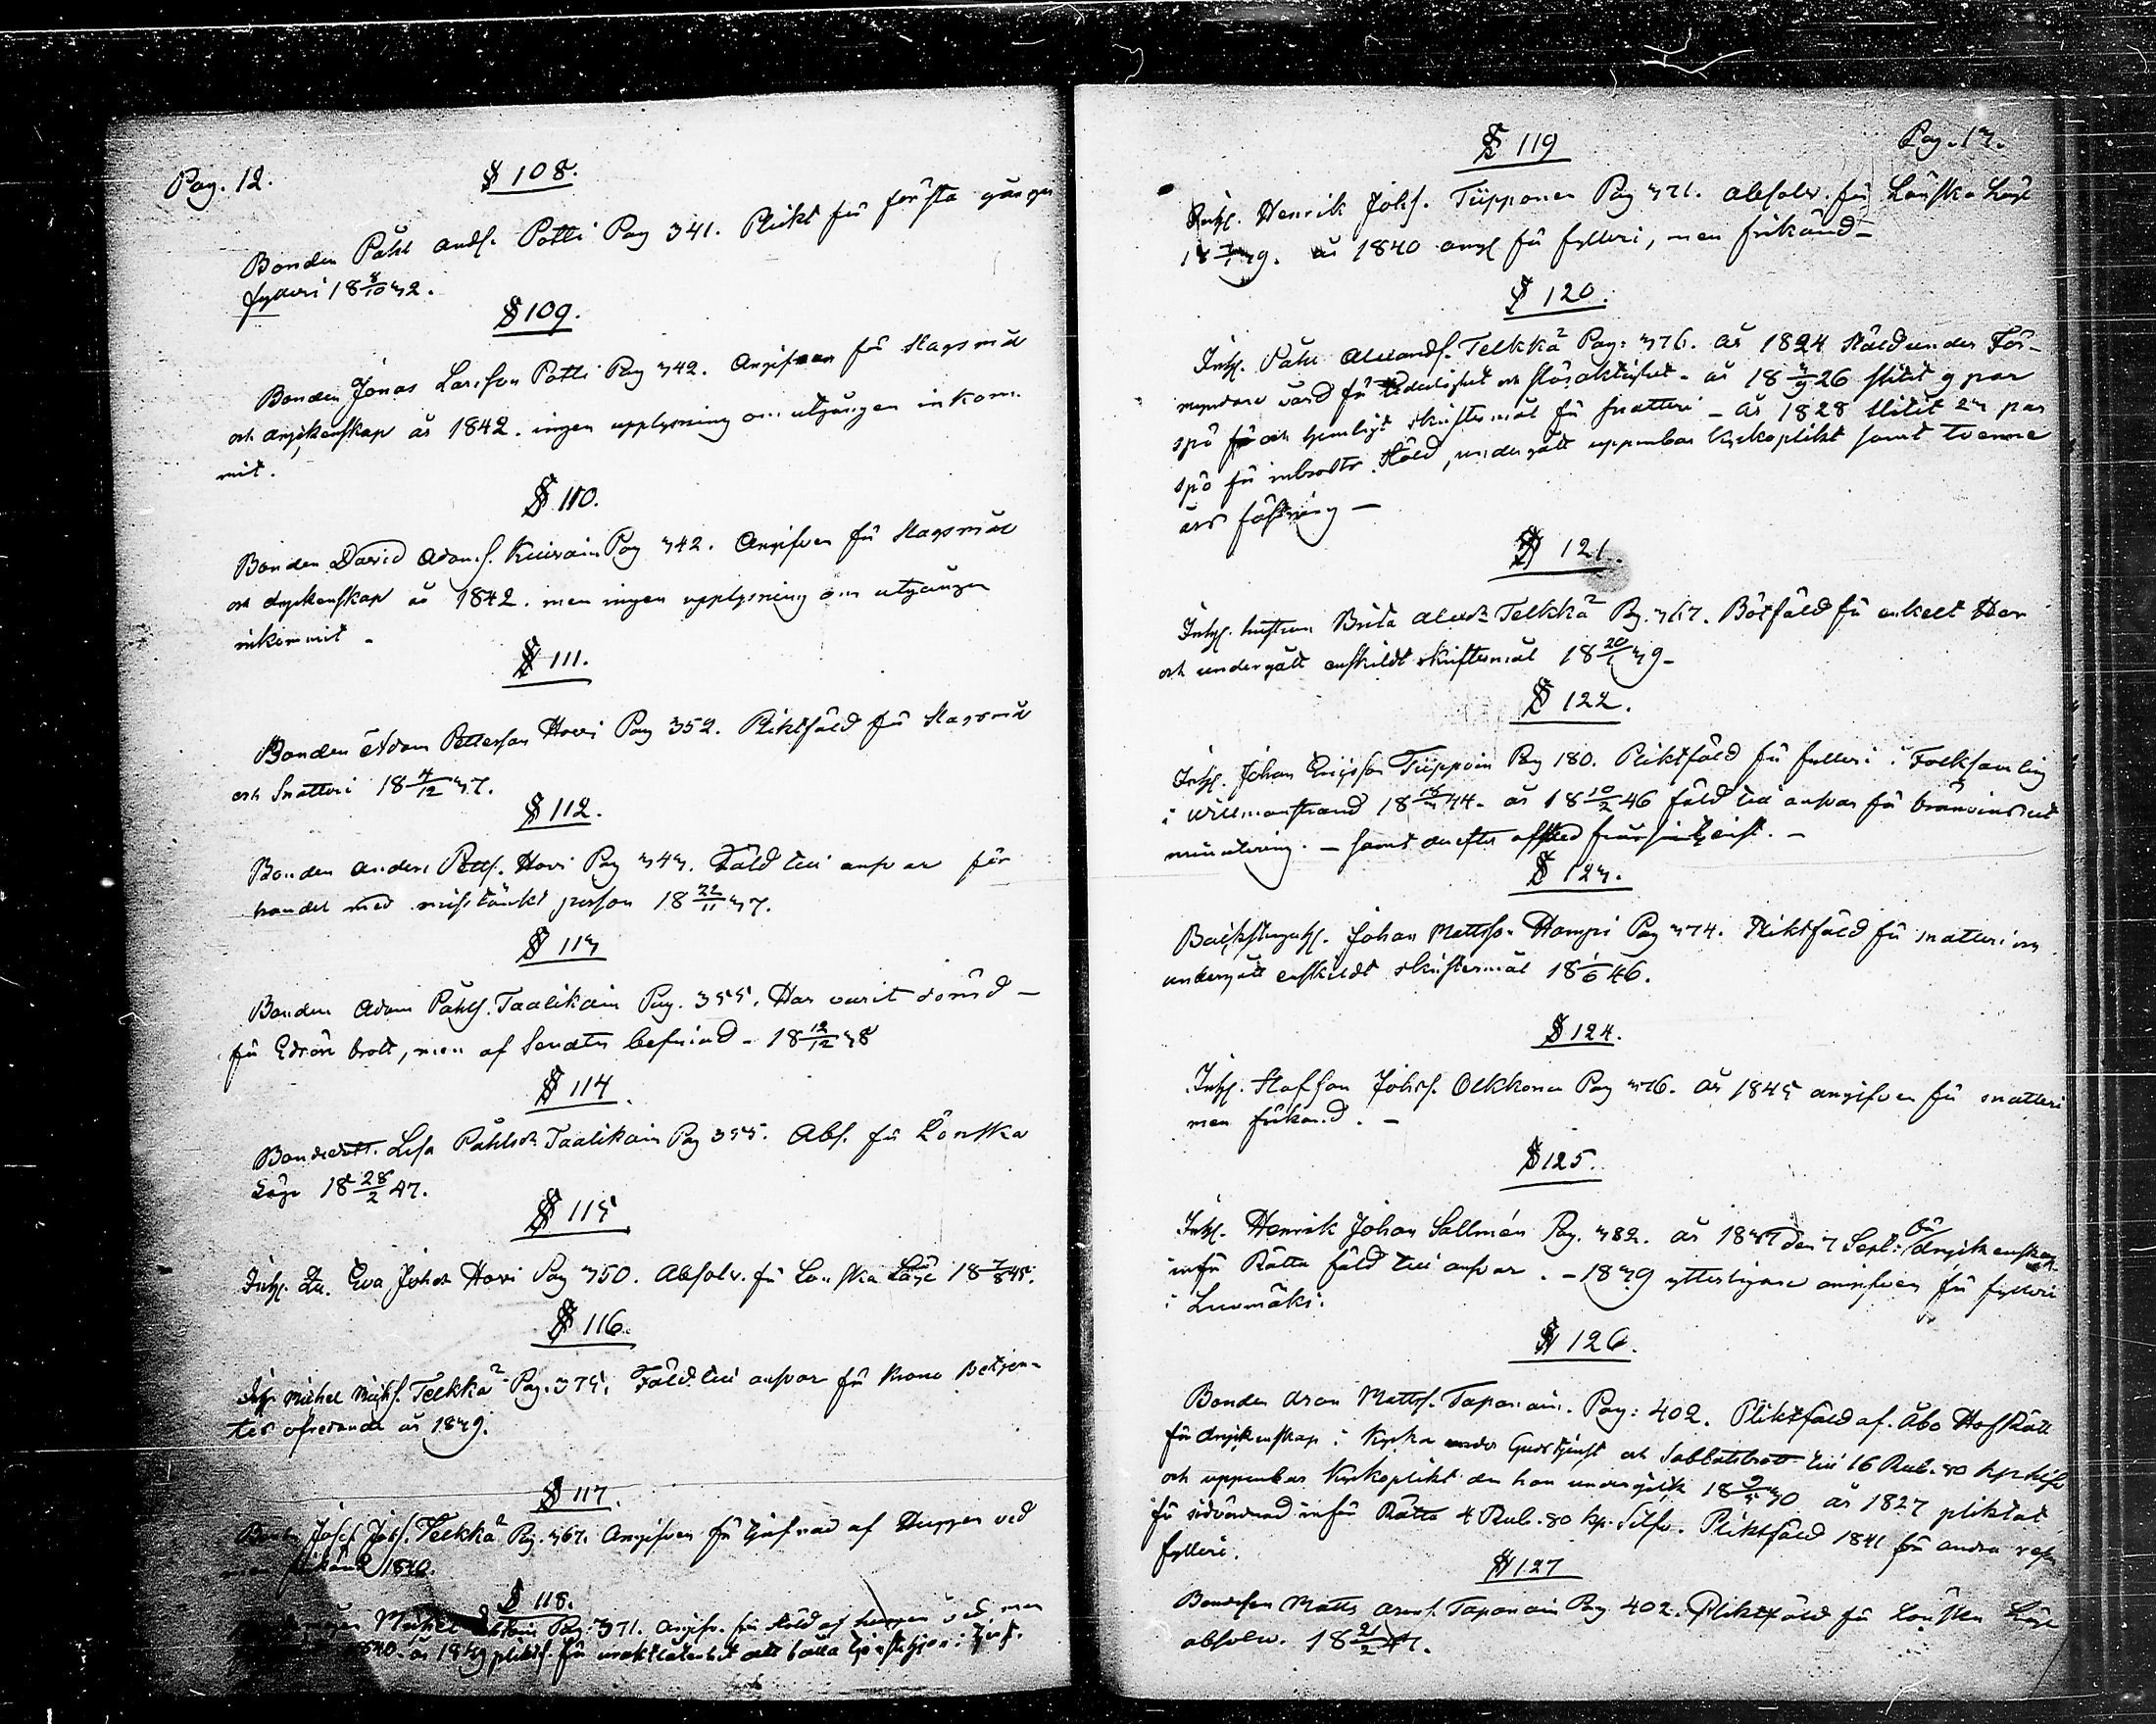 Pag. 12.
§ 108.
Bonden Påhl Andss. Potti Pag 341. Plikt för första gången
fylleri 18 8/10 32.
§ 109.
Bonden Jonas Larsson Potti Pag 342. Angifven för slagsmål
och dryckenskap år 1842. ingen upplysning om utgången inkom-
mit.
§ 110.
Bonden David Adams. Kuivain Pag 342. Angifven för slagsmål
och dryckenskap år 1842. men ingen upplysning om utgången
inkommit -
§ 111.
Bonden Adam Pettersson Hovi Pag 352. Pliktfäld för slagsmål
och Snatteri 18 4/12 37.
§ 112.
Bonden Anders Petts. Hovi Pag 343. Fäld till ansvar för
handel med misstänkt person 18 22/11 37.
§ 113
Bonden Adam Påhls. Taalikain Pag. 355. Har varit dömd -
för Edsöre brott, men af Senaten befriad - 18 12/12 38
§ 114.
Bondedott. Lisa Påhlsdr Taalikain Pag 355. Abs. för Lönska
Läge 18 28/2 47.
§ 115
Inhs. Eva Johsdr Hovi Pag 350. Absolv. för Lönska Läge 18 7/8 45.
§ 116.
Inhs. Michel Michs. Telkkä Pag. 375. Fäld till ansvar för Krono Betjen-
tes ofredande år 1839.
§ 117.
Josef Jos. Telkkä Pag. 367. Angifven för tjufnad af Huggen ved
men frikänd 1840.
§ 118.
Michel Pag. 371. Angifv. för stöld af huggen ved, men
1840. år 1839 pliktf. för uraktlåtenhet att

Pag. 13.
§ 119
Inhs. Henrik Johs. Tiipponen Pag 371. absolv. för Lönska Läge
18 39. år 1840 angs för fylleri, men frikänd -
§ 120.
Inhs. Påhl Alexands. Telkkä Pag: 376. år 1824 ställd under För-
myndare vård för liderlighet och slösaktighet - år 18 3/9 26 slitit 9 par
spö och hemligt skriftermål för snatteri - år 1828 slitit 23 par
spö för inbrotts stöld, undergått uppenbar kyrkoplikt samt tvenne
års fästning -
§ 121.
Inhs. hustrun Brita Alexdr Telkkä Pag. 367. Bötfäld för enkelt Hor
och undergått enskildt skriftermål 18 20/1 39 -
§ 122.
Inhs. Johan Ericsson Tiippoin Pag 180. Pliktfäld för fylleri i Folksamling
i Willmanstrand 18 44 - år 18 10/2 46 fäld till ansvar för bränvins ut
minutering. - samt derefter afsked från sin tjenst. -
§ 123.
Johan Mattsson Hampi Pag 374. Pliktfäld för snatteri och
undergått enskildt skriftermål 18 1/6 46.
§ 124.
Inhs. Staffan Johs. Olkkonen Pag 376. år 1845 angifven för snatteri
men frikänd. -
§ 125.
Inhs. Henrik Johan Sallmén Pag. 382. år 1837 den 7 Sept: för dryckenskap
inför Rätta fäld till ansvar. - 1839 ytterligare angifven för fylleri
i Luumäki.
§ 126.
Bonden Aron Matts. Taponain. Pag: 402. Pliktfäld af Åbo HofRätt
för dryckenskap i Kyrka under Gudstjenst och Sabbatsbrott till 16 Rub. 80 kp silfv
och uppenbar Kyrkoplikt den han undergick 18 9/5 30 år 1827 pliktat
för svordomar inför Rätta 4 Rub. 80 kp. Silfv. Pliktfäld 1841 för andra resan
fylleri.
§ 127
Bondeson Matts Arons. Taponain Pag 402. Pliktfäld för Lönska Läge
absolv. 18 21/2